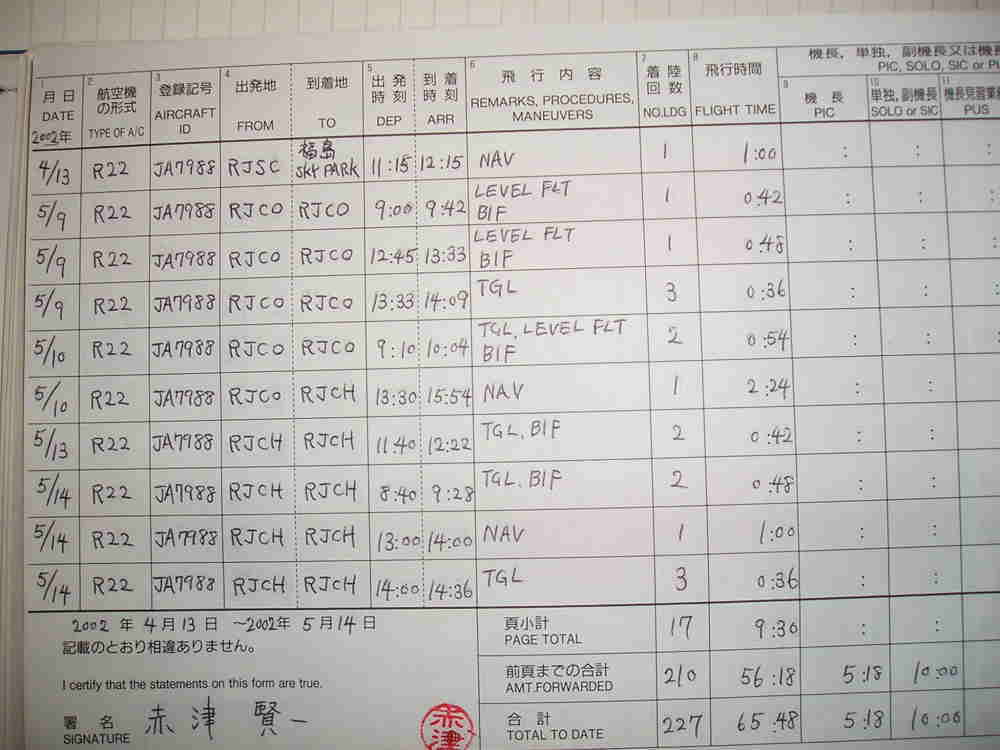 機長, 単独, 副機長又は機
PIC, SOLO, SIC or PU
1 月日 DATE 2002年
2 航空機の形式 TYPE OF A/C
3 登録記号 AIRCRAFT ID
4 出発地 FROM
到着地 TO
5 出発時刻 DEP
到着時刻 ARR
6 飛行内容 REMARKS, PROCEDURES, MANEUVERS
7 着陸回数 NO.LDG
8 飛行時間 FLIGHT TIME
9 機長 PIC
10 単独, 副機長 SOLO or SIC
11 機長見習業 PUS
4/13 R22 JA7988 RJSC 福島 SKY PARK 11:15 12:15 NAV 1 1:00 : :
5/9 R22 JA7988 RJCO RJCO 9:00 9:42 LEVEL FLT BIF 1 0:42 : :
5/9 R22 JA7988 RJCO RJCO 12:45 13:33 LEVEL FLT BIF 1 0:48 : :
5/9 R22 JA7988 RJCO RJCO 13:33 14:09 TGL 3 0:36 : :
5/10 R22 JA7988 RJCO RJCO 9:10 10:04 TGL, LEVEL FLT BIF 2 0:54 : :
5/10 R22 JA7988 RJCO RJCH 13:30 15:54 NAV 1 2:24 : :
5/13 R22 JA7988 RJCH RJCH 11:40 12:22 TGL, BIF 2 0:42 : :
5/14 R22 JA7988 RJCH RJCH 8:40 9:28 TGL, BIF 2 0:48 : :
5/14 R22 JA7988 RJCH RJCH 13:00 14:00 NAV 1 1:00 : :
5/14 R22 JA7988 RJCH RJCH 14:00 14:36 TGL 3 0:36 : :
2002 年 4月13日 ~2002年 5月14日
記載のとおり相違ありません。
I certify that the statements on this form are true.
署名 SIGNATURE 赤津 賢一
赤津
頁小計 PAGE TOTAL 17 9:30 : :
前頁までの合計 AMT.FORWARDED 210 56:18 5:18 10:00
合計 TOTAL TO DATE 227 65:48 5:18 10:00